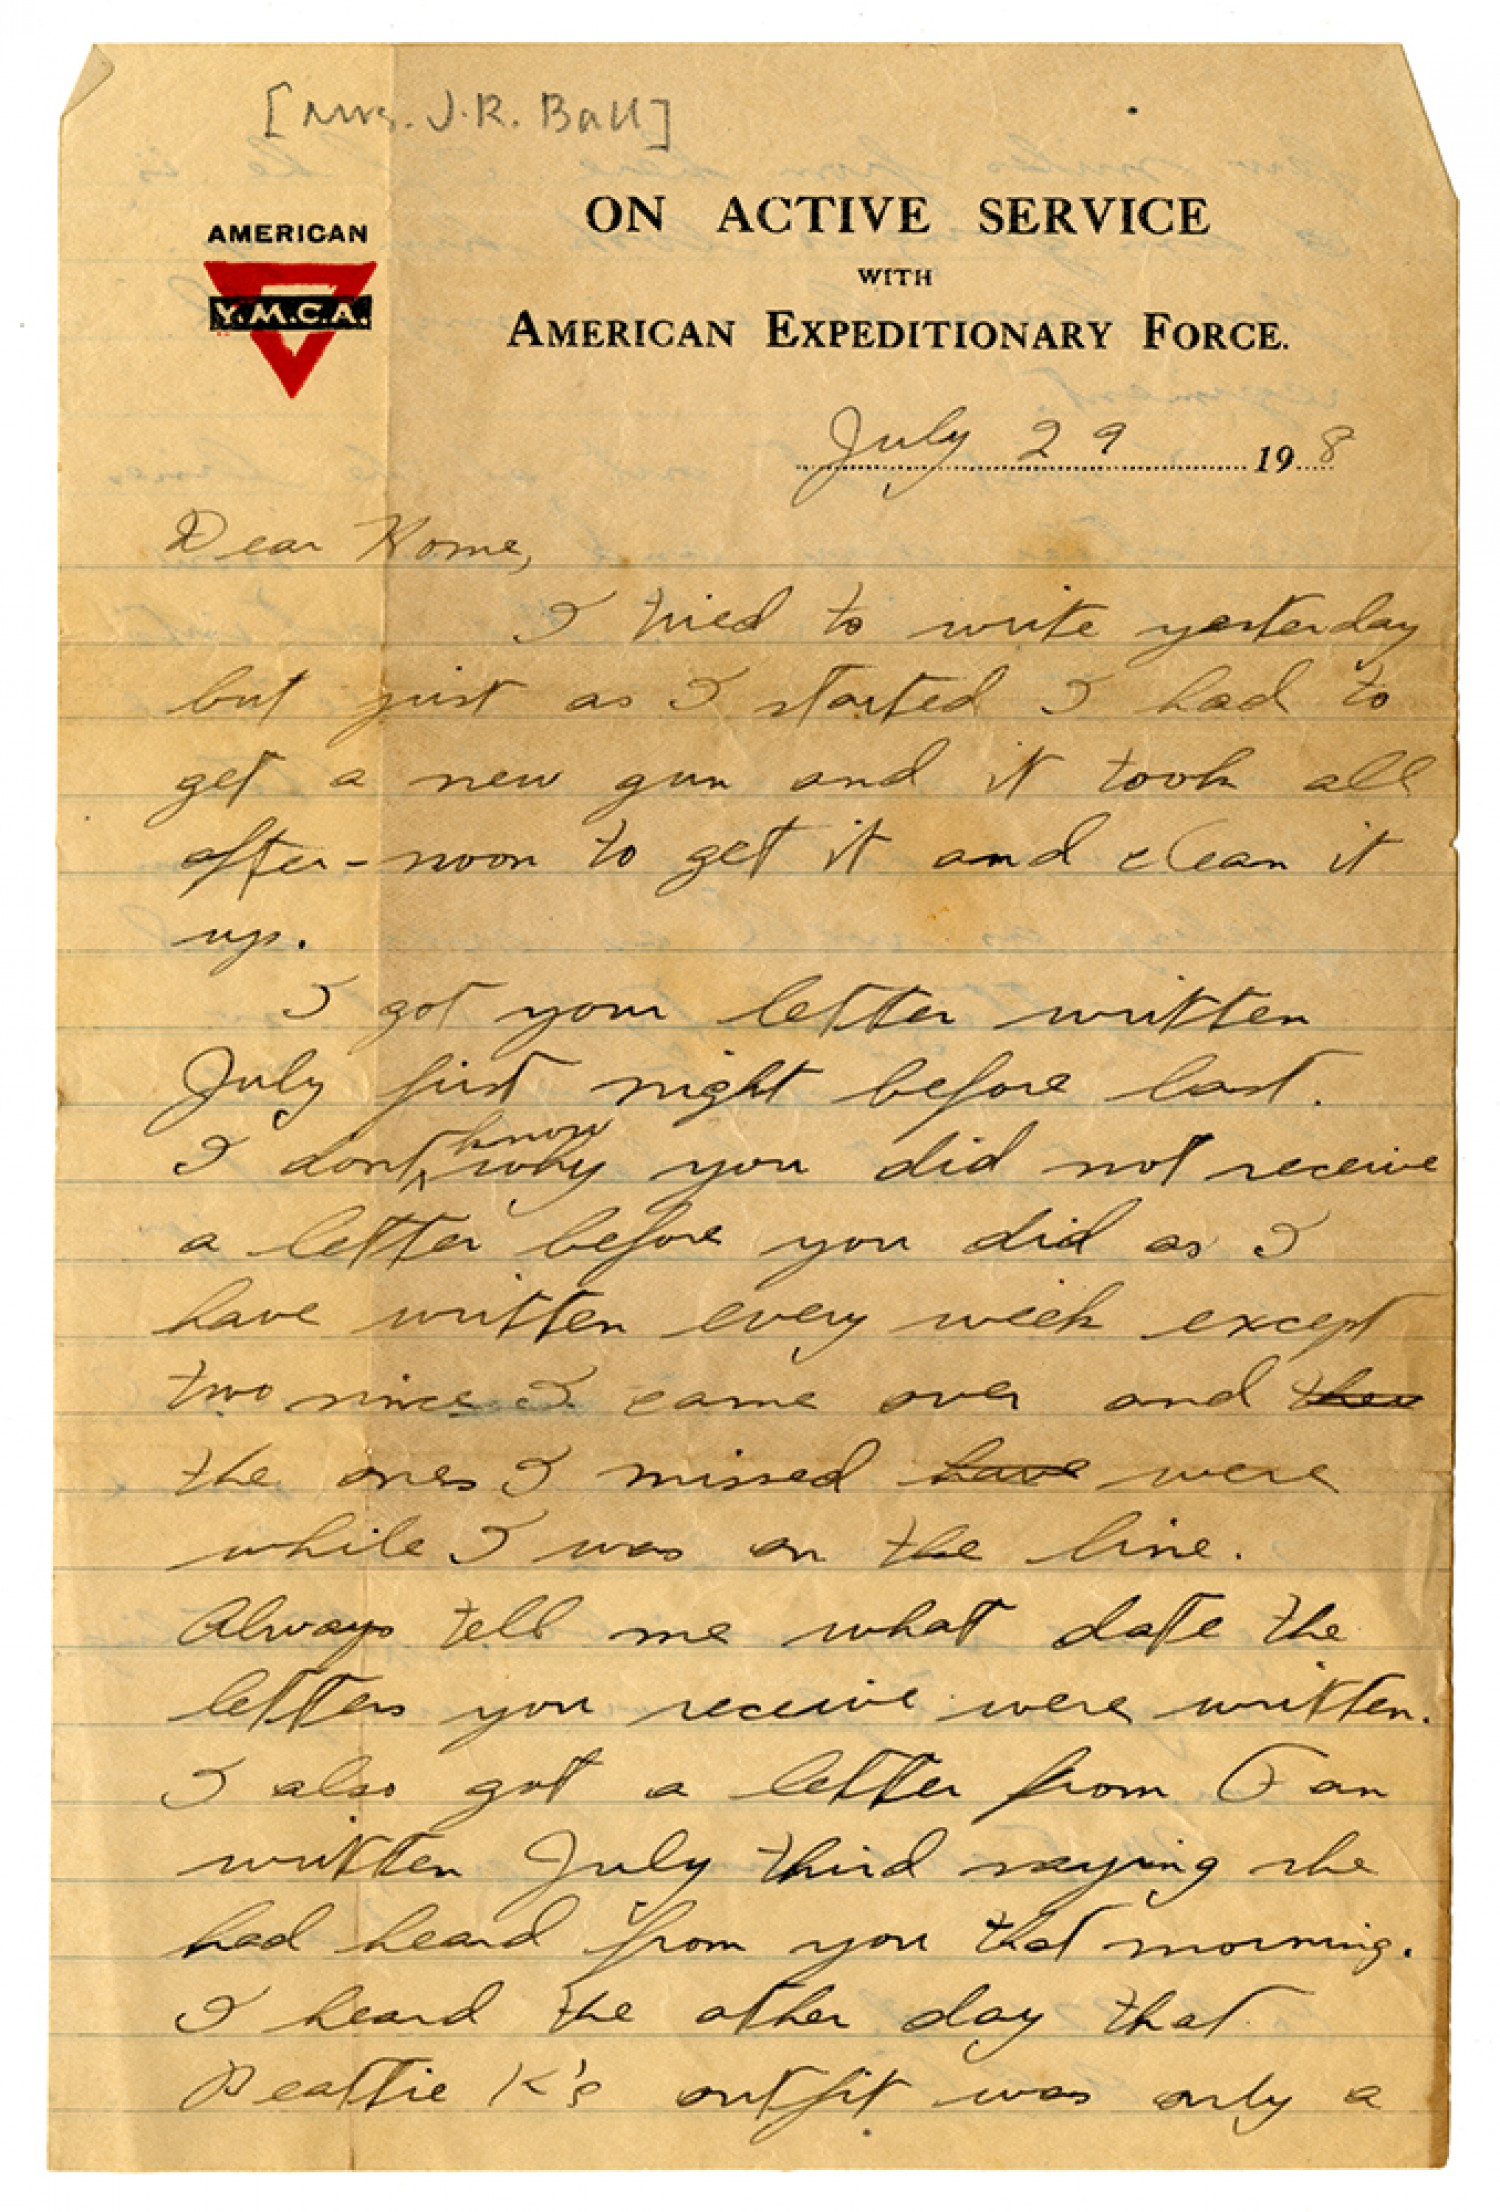 [Mrs. J.R. Ball]
AMERICAN
Y.M.C.A.
ON ACTIVE SERVICE
WITH
AMERICAN EXPEDITIONARY FORCE.
July 29 19 8
Dear Home,
I tried to write yesterday
but just as I started I had to
get a new gun and it took all
after-noon to get it and clean it
up.
I got your letter written
July first night before last.
I dont know why you did not receive
a letter before you did as I
have written every week except
two since I came over and then
the ones I missed have were
while I was on the line.
Always tell me what date the
letters you receive were written.
I also got a letter from Fan
written July third saying she
had heard from you that morning.
I heard the other day that
Beattie K's outfit was only a